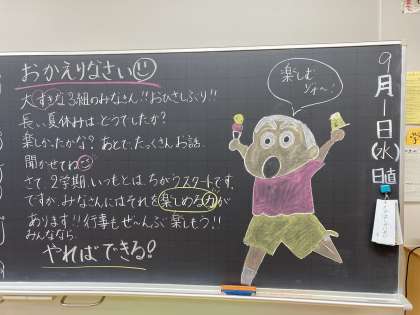 おかえりなさい
大すきな3組のみなさん!!おひさしぶり!!
長い夏休みは どうでしたか?
楽しかったかな? あとで、たっくさんお話
聞かせてね
さて、2学期、いつもとは、ちがうスタートです。
ですが、みなさんにはそれを楽しめる力が
あります!!行事もぜ〜んぶ楽しもう!!
みんななら
やればできる!
楽しむ
ゾォ〜!
9月1日(水)
日直